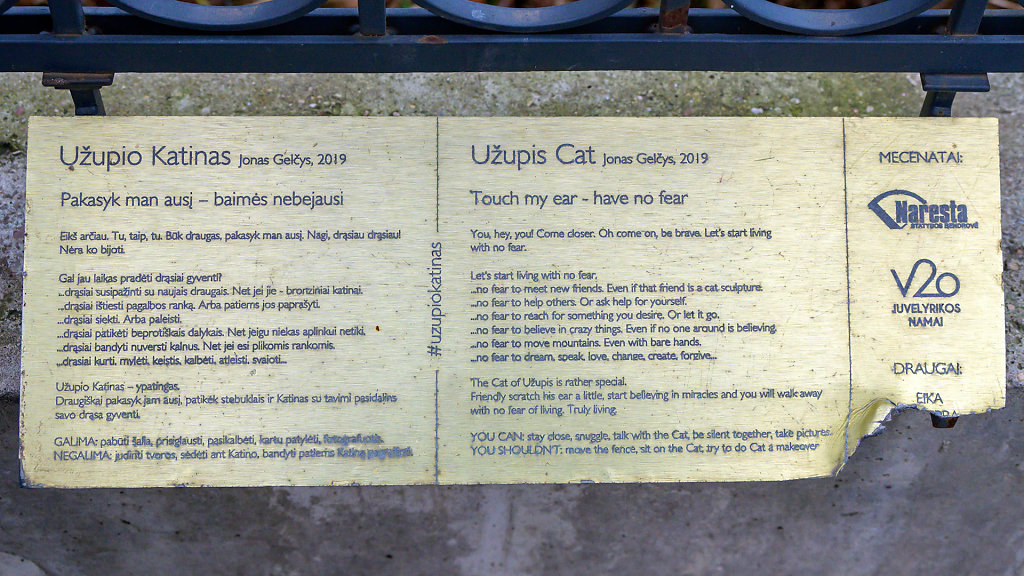 Užupio Katinas Jonas Gelčys, 2019
Pakasyk man ausį – baimės nebejausi
Eikš arčiau. Tu, taip, tu. Būk draugas, pakasyk man ausį. Nagi, drąsiau drąsiau!
Nėra ko bijoti.
Gal jau laikas pradėti drąsiai gyventi?
...drąsiai susipažinti su naujais draugais. Net jei jie - brortziniai katinai.
...drąsiai ištiesti pagalbos ranką. Arba patiems jos paprašyti.
...drąsiai siekti. Arba paleisti.
...drąsiai patikėti beprotiškais dalykais. Net jeigu niekas aplinkui netiki.
...drąsiai bandyti nuversti kalnus. Net jei esi plikomis rankomis.
...drąsiai kurti, mylėti, keistis, kalbėti, atleisti, svajoti...
Užupio Katinas – ypatingas.
Draugiškai pakasyk jam ausį, patikėk stebuklais ir Katinas su tavimi pasidalins
savo drąsa gyventi.
GALIMA: pabūti šalia, prisiglausti, pasikalbėti, kartu patylėti, fotografuotis.
NEGALIMA: judinti tvoros, sėdėti ant Katino, bandyti patiems Katiną pagražinti.
#uzupiokatinas
Užupis Cat Jonas Gelčys, 2019
Touch my ear - have no fear
You, hey, you! Come closer. Oh come on, be brave. Let's start living
with no fear.
Let's start living with no fear.
...no fear to meet new friends. Even if that friend is a cat sculpture.
...no fear to help others. Or ask help for yourself.
...no fear to reach for something you desire. Or let it go.
...no fear to believe in crazy things. Even if no one around is believing.
...no fear to move mountains. Even with bare hands.
...no fear to dream, speak, love, change, create, forgive...
The Cat of Užupis is rather special.
Friendly scratch his ear a little, start believing in miracles and you will walk away
with no fear of living. Truly living.
YOU CAN: stay close, snuggle, talk with the Cat, be silent together, take pictures.
YOU SHOULDN'T: move the fence, sit on the Cat, try to do Cat a makeover
MECENATAI:
Naresta
STATYBOS BENDROVĖ
V2O
JUVELYRIKOS
NAMAI
DRAUGAI:
EIKA